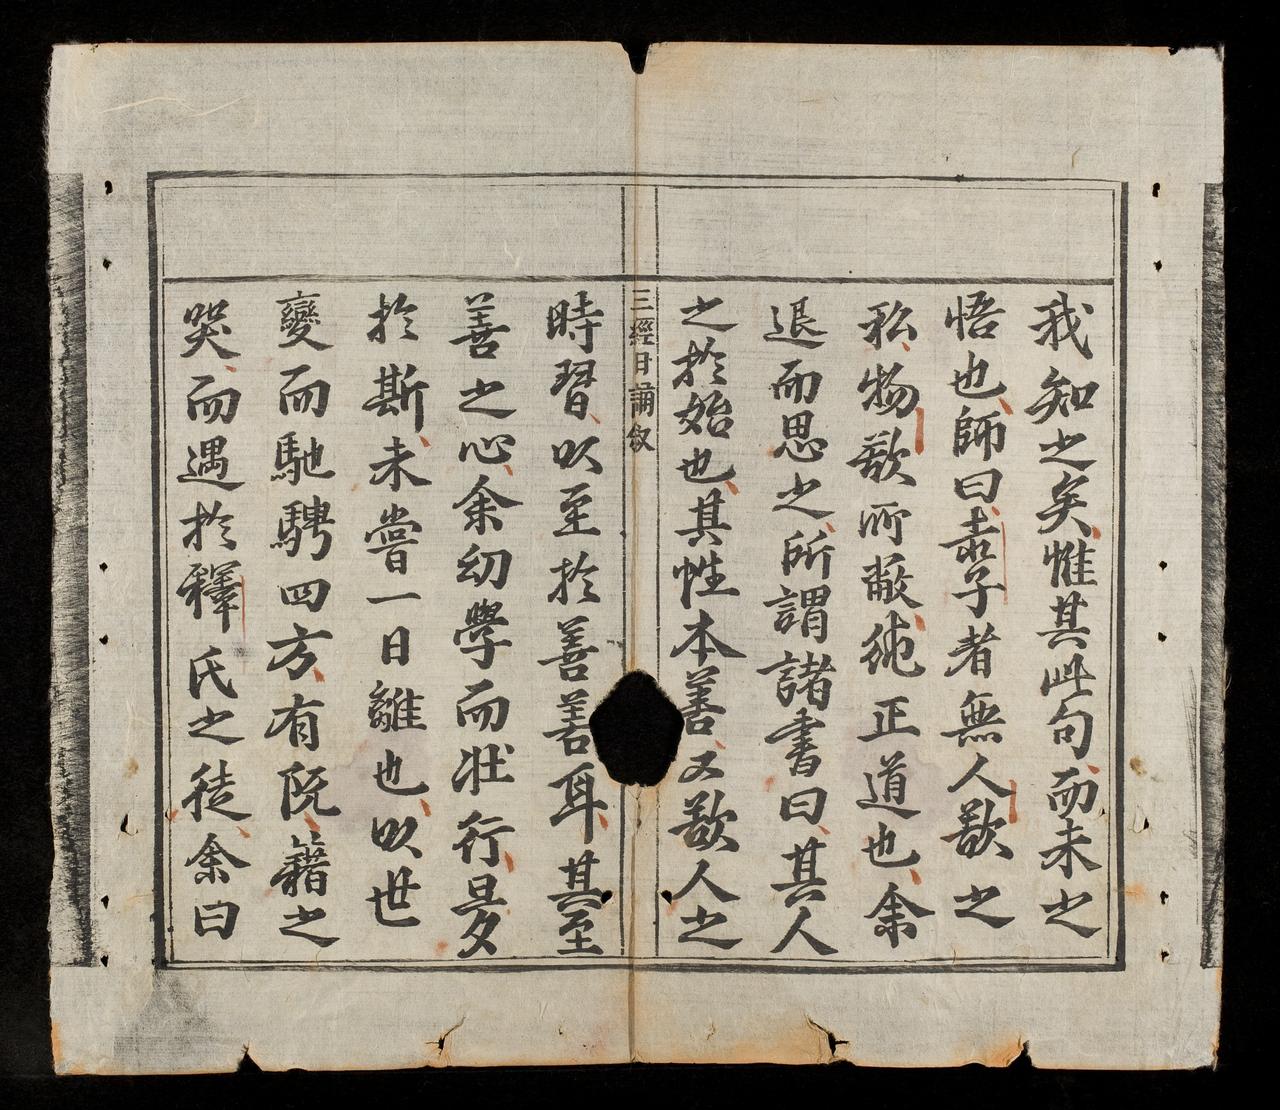 我知之矣惟其此句而未之
悟也師曰赤子者無人歜之
私物歜所蔽純正道也余
退而思之所謂諸書曰其人
之於始也其性本善又歜人之
三經日誦敘
時習以至於善善耳其至
善之心余幼學而壯行
於斯未嘗一日離也以世
變而馳騁四方有阮籍之
哭而遇於釋氏之徒余曰